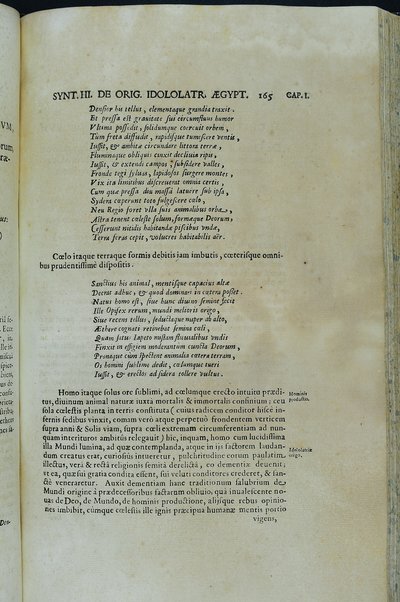 SYNT. III. DE ORIG. IDOLOLATR. ÆGYPT. 165 CAP. I.
Densior his tellus, elementaque grandia traxit.
Et pressa est grauitate sui circumfluus humor
Vltima possedit, solidumque coercuit orbem,
Tum freta diffudit, rapidisque tumescere ventis,
Iussit, & ambitæ circundare littora terræ,
Fluminaque obliquis cinxit decliuia ripis,
Iussit, & extendi campos, subsidere valles,
Fronde tegi syluas, lapidosos surgere montes,
Vix ita limitibus discreuerat omnia certis,
Cum quæ pressa diu massa latuere sub ipsa,
Sydera cœperunt toto fulgescere cælo,
Neu Regio foret vlla suis animalibus orba,
Astra tenent cæleste solum, formæque Deorum,
Cesserunt nitidis habitandæ piscibus vndæ,
Terra feras cepit, volucres habitabilis aër.
Cœlo itaque terraque formis debitis iam imbutis, cœterisque omni-
bus prudentissimè dispositis.
Sanctius his animal, mentisque capacius altæ
Deerat adhuc, & quod dominari in cætera posset.
Natus homo est, siue hunc diuino semine fecit
Ille Opifex rerum, mundi melioris origo,
Siue recens tellus, seductaque nuper ab alto,
Æthere cognati retinebat semina cæli,
Quam satus Iapeto mistam fluuialibus vndis
Finxit in effigiem moderantum cuncta Deorum,
Pronaque cum spectent animalia cætera terram,
Os homini sublime dedit, cælumque tueri
Iussit, & erectos ad sidera tollere vultus.
Homo itaque solus ore sublimi, ad cœlumque erecto intuito prædi-
tus, diuinum animal naturæ iuxta mortalis & immortalis confinium; ceu
sola cœlestis planta in terris constituta (cuius radicem conditor hisce in-
fernis sedibus vinxit, comam verò atque perpetuò frondentem verticem
supra anni & Solis viam, supra cœli extremam circumferentiam ad nun-
quam interituros ambitus relegauit) hic, inquam, homo cum lucidissima
illa Mundi lumina, ad quæ contemplanda, atque in ijs factorem laudan-
dum creatus erat, curiosius intueretur, pulchritudine eorum paulatim
illectus, vera & recta religionis semita derelicta, eo dementiæ deuenit,
vt ea, quæ sui gratia condita essent, sui veluti conditores crederet, & san-
ctè veneraretur. Auxit dementiam hanc traditionum salubrium de
Mundi origine à prædecessoribus factarum obliuio, qua inualescente no-
uas de Deo, de Mundo, de hominis productione, alijsque rebus opinio-
nes imbibit, cùmque cœlestis ille ignis præcipua humanæ mentis portio
vigens,
Hominis
Productio.
Idololatriæ
origo.